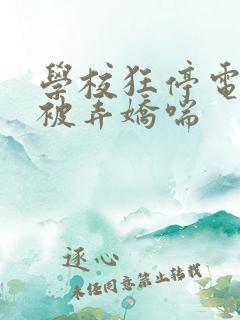 學校狂停電
被弄嬌喘
逐心
未经同意禁止转载